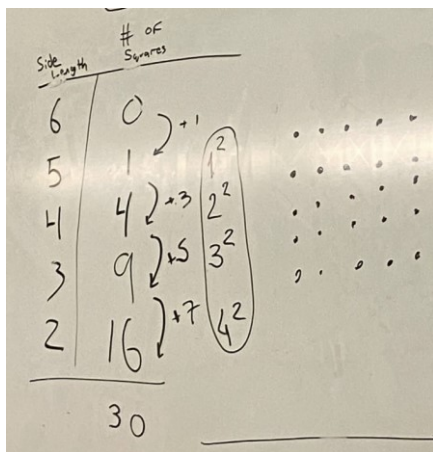 Side Length # of Squares
6 0 +1
5 1 1²
4 4 +3 2²
3 9 +5 3²
2 16 +7 4²
30